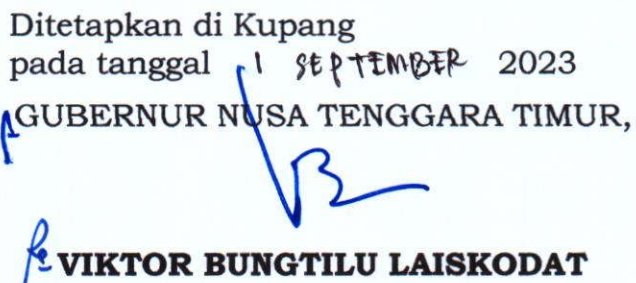 Ditetapkan di Kupang
pada tanggal 1 SEPTEMBER 2023
GUBERNUR NUSA TENGGARA TIMUR,
VIKTOR BUNGTILU LAISKODAT